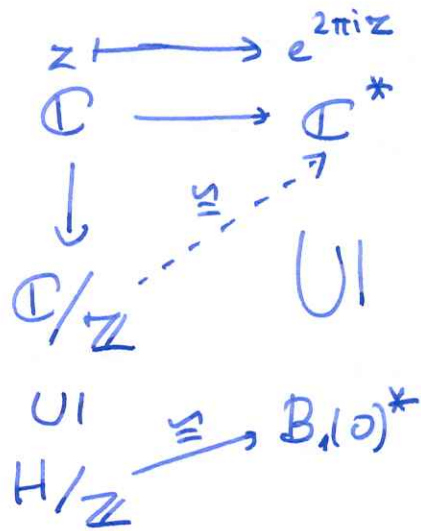 z ⟼ e^{2πiz}
ℂ ⟶ ℂ^*
↓ ≅
ℂ/ℤ ∪|
∪| ≅
H/ℤ ⟶ B₁(0)^*